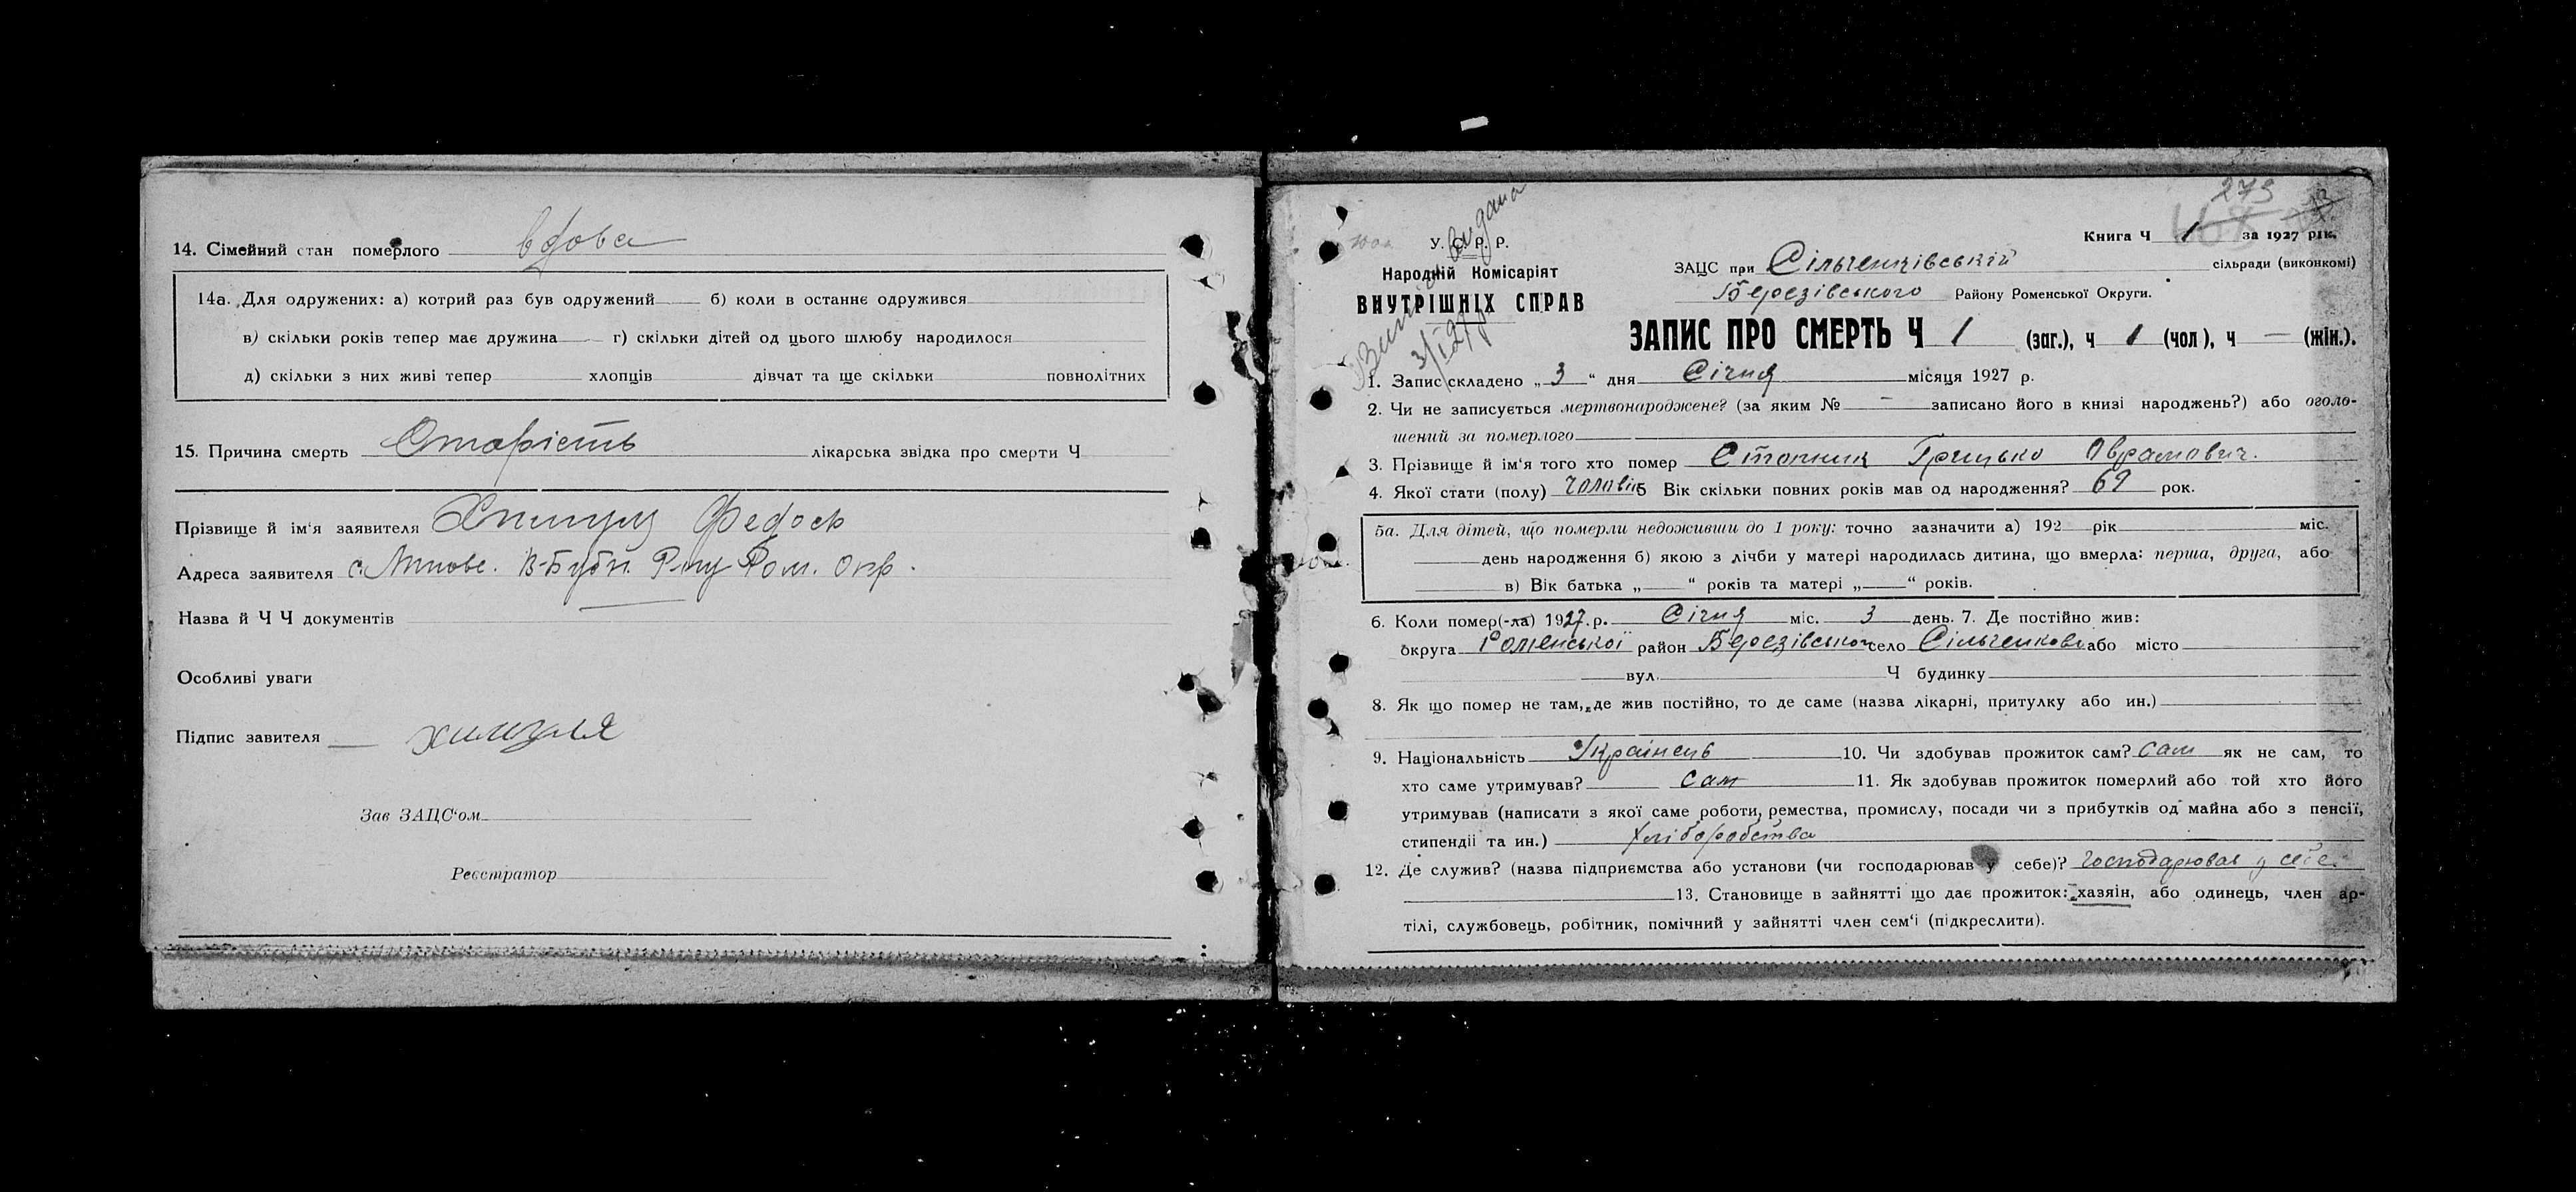 14. Сімейний стан померлого вдова
14а. Для одружених: а) котрий раз був одружений б) коли в останнє одружився
в) скільки років тепер має дружина г) скільки дітей од цього шлюбу народилося
д) скільки з них живі тепер хлопців дівчат та ще скільки повнолітних
15. Причина смерть Старість лікарська звідка про смерти Ч
Прізвище й ім'я заявителя Федось
Адреса заявителя с. В-Бубн. Р-ну Ром. Окр.
Назва й Ч Ч документів
Особливі уваги
Підпис завителя
Зав ЗАЦС'ом
Реєстратор
279
Книга Ч 1 за 1927 рік.
У. С. Р. Р.
Народній Комісаріят
ВНУТРІШНІХ СПРАВ
видана
ЗАЦС при Сільченківській сільради (виконкомі)
Березівського Району Роменської Округи.
ЗАПИС ПРО СМЕРТЬ Ч 1 (заг.), ч 1 (чол), ч — (жін.).
1. Запис складено „3“ дня Січня місяця 1927 р.
2. Чи не записується мертвонароджене? (за яким № - записано його в книзі народжень?) або оголо-
шений за померлого
3. Прізвище й ім'я того хто помер Грицько Оврамович.
4. Якої стати (полу) чоловік 5 Вік скільки повних років мав од народження? 69 рок.
5а. Для дітей, що померли недоживши до 1 року: точно зазначити а) 192 рік міс.
день народження б) якою з лічби у матері народилась дитина, що вмерла: перша, друга, або
в) Вік батька „ “ років та матері „ “ років.
6. Коли помер(-ла) 1927.р. Січня міс. 3 день. 7. Де постійно жив:
округа Роменської район Березівськог село Сільченкове або місто
вул. Ч будинку
8. Як що помер не там, де жив постійно, то де саме (назва лікарні, притулку або ин.)
9. Національність Українець 10. Чи здобував прожиток сам? сам як не сам, то
хто саме утримував? сам 11. Як здобував прожиток померлий або той хто його
утримував (написати з якої саме роботи, ремества, промислу, посади чи з прибутків од майна або з пенсії,
стипендії та ин.) хліборобства
12. Де служив? (назва підприємства або установи (чи господарював у себе)? господарював у себе.
13. Становище в зайнятті що дає прожиток: хазяін, або одинець, член ар-
тілі, службовець, робітник, помічний у зайнятті член сем'і (підкреслити).